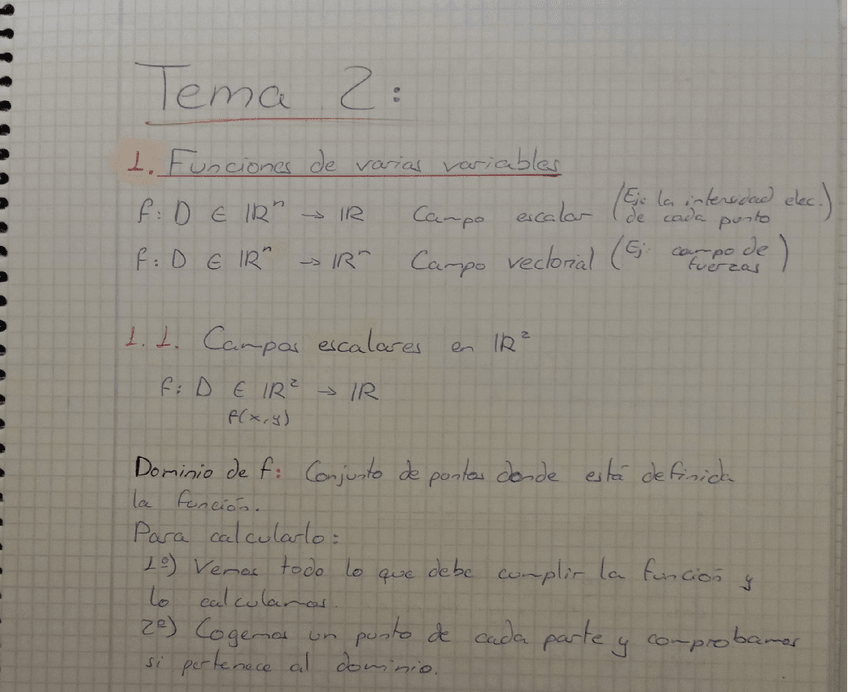 Tema 2:
1. Funciones de varias variables
f: D ∈ ℝⁿ → ℝ Campo escalar (Ej: la intensidad elec. de cada punto)
f: D ∈ ℝⁿ → ℝⁿ Campo vectorial (Ej: campo de fuerzas)
1.1. Campos escalares en ℝ²
f: D ∈ ℝ² → ℝ
f(x,y)
Dominio de f: Conjunto de puntos donde está definida
la función.
Para calcularlo:
1º) Vemos todo lo que debe cumplir la función y
lo calculamos.
2º) Cogemos un punto de cada parte y comprobamos
si pertenece al dominio.